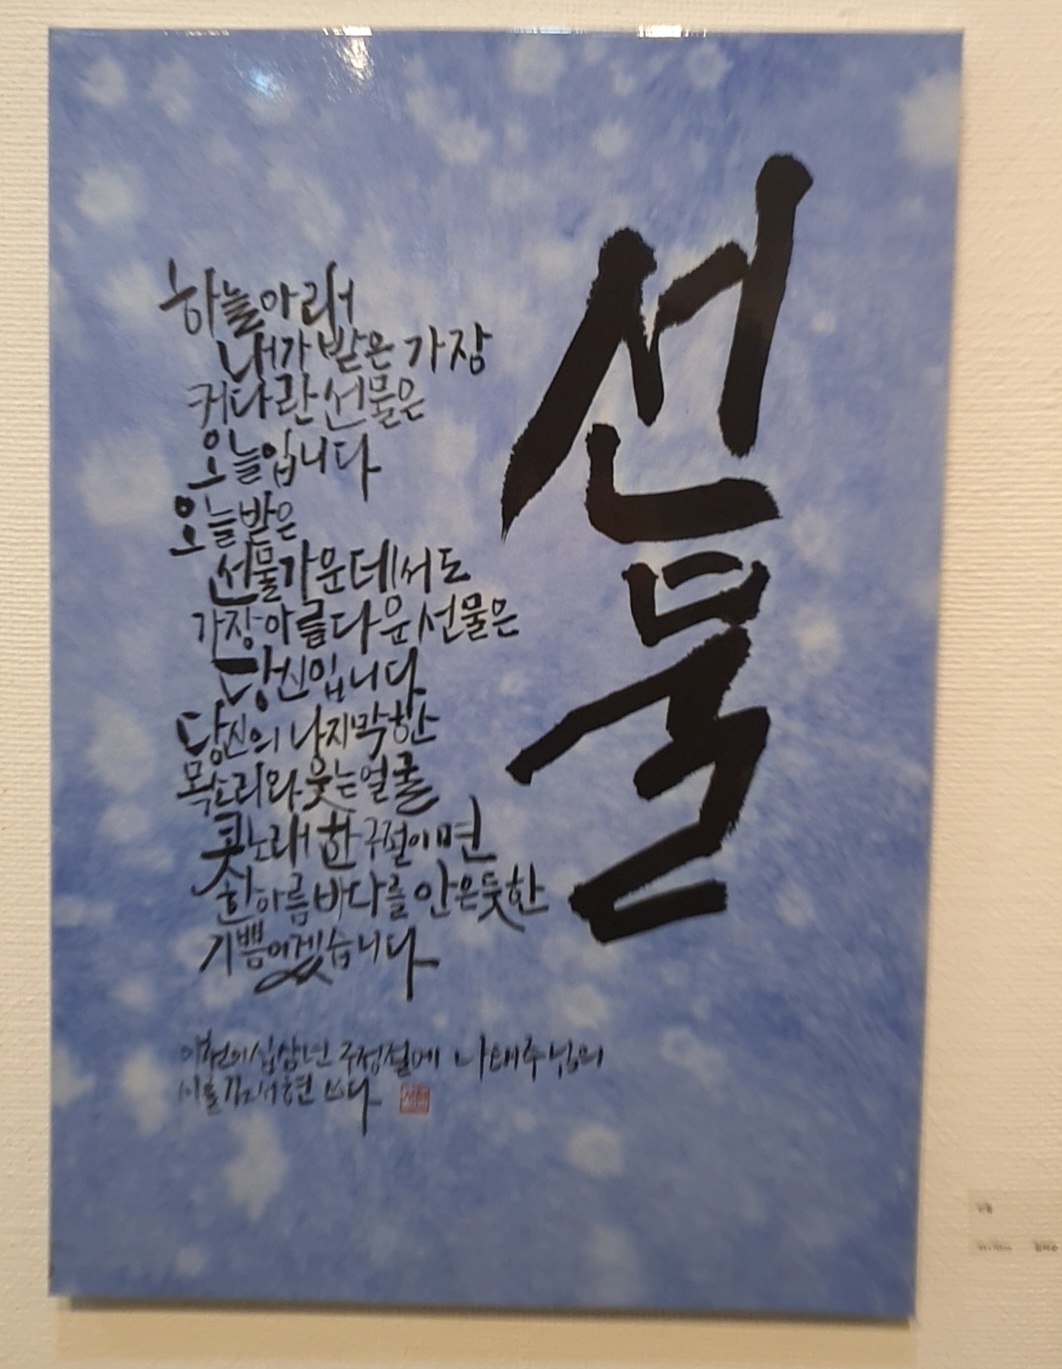 선물
하늘 아래서
내가 받은 가장
커다란 선물은
오늘입니다
오늘 받은
선물 가운데서도
가장 아름다운 선물은
당신입니다
당신의 나지막한
목소리와 웃는 얼굴
콧노래 한 구절이면
한아름 바다를 안은 듯한
기쁨이겠습니다
이천이십삼년 추정절에 나태주님의
시를 김서현 쓰다